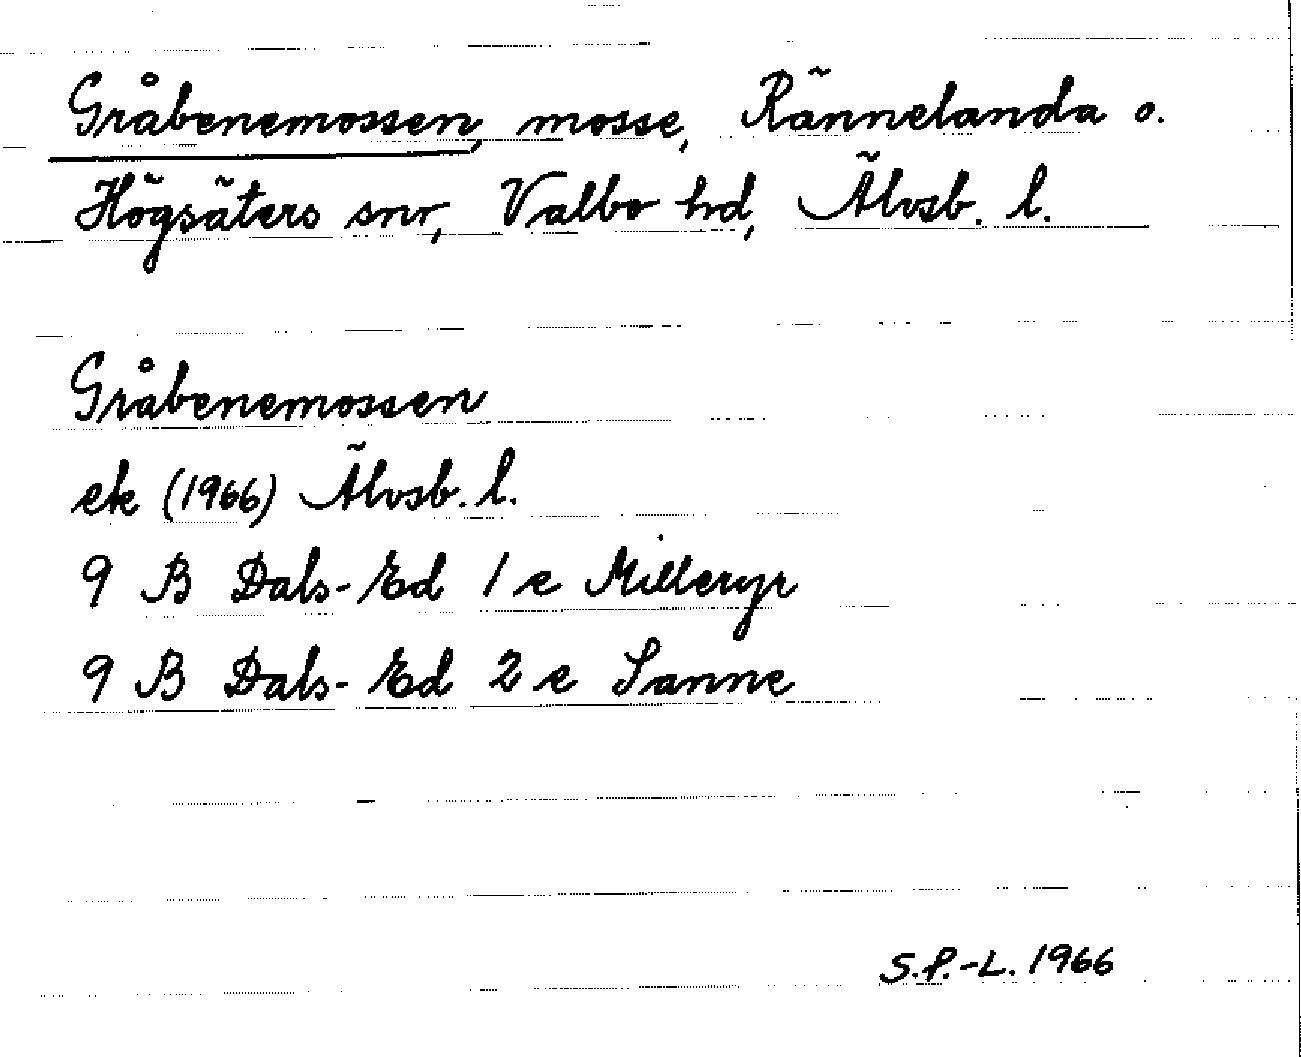 Gråbenemossen, mosse, Rännelanda o.
Högsäters snr, Valbo hd, Älvsb. l.
Gråbenemossen
ek (1966) Älvsb. l.
9 B Dals-Ed 1 e Milleryr
9 B Dals-Ed 2 e Sanne
S.P.-L. 1966